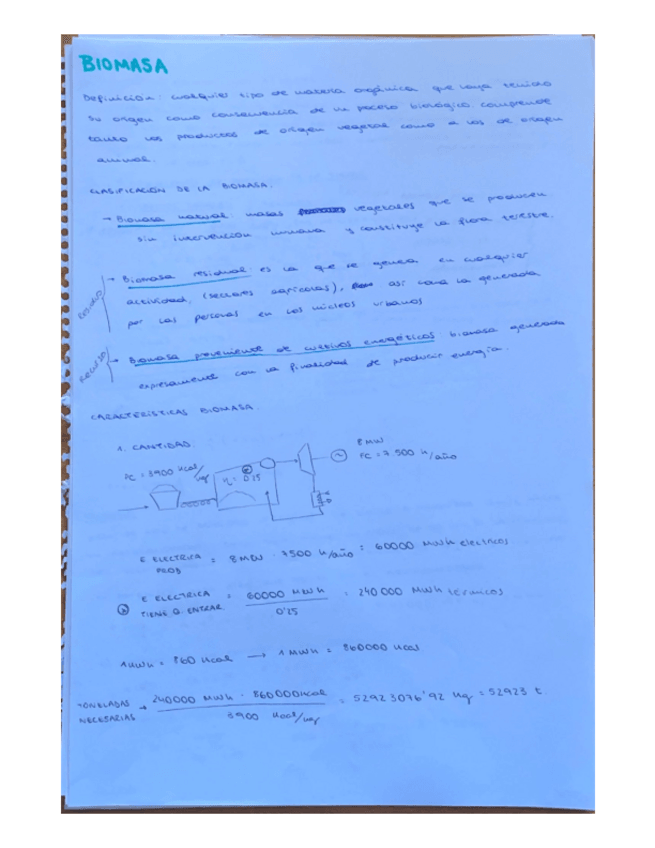 BIOMASA
Definición: cualquier tipo de materia orgánica que haya tenido
su origen como consecuencia de un proceso biológico, comprende
tanto los productos de origen vegetal como a los de origen
animal.
CLASIFICACIÓN DE LA BIOMASA.
→ Biomasa natural: masas vegetales que se producen
sin intervención humana y constituye la flora terestre.
RESIDUO
→ Biomasa residual es la que se genera en cualquier
actividad, (sectores agrícolas), así como la generada
por las personas en los núcleos urbanos
RECURSO
→ Biomasa proveniente de cultivos energéticos biomasa generada
expresamente con la finalidad de producir energía.
CARACTERÍSTICAS BIOMASA.
1. CANTIDAD.
PC = 3900 kcal/kg
η = 0'25
8 MW
FC = 7.500 h/año
E ELECTRICA PROD = 8 MW · 7500 h/año = 60000 MWh electricos
E ELECTRICA TIENE Q. ENTRAR = 60000 MWh / 0'25 = 240 000 MWh térmicos
1 kWh = 860 kcal → 1 MWh = 860000 kcal
TONELADAS NECESARIAS → 240000 MWh · 860000 kcal / 3900 kcal/kg = 52923076'92 kg = 52923 t.